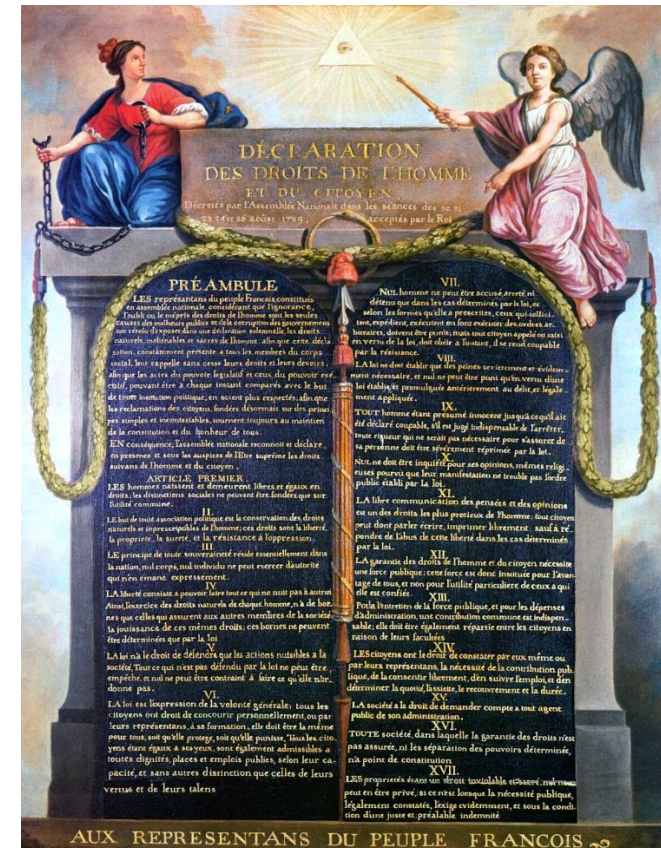 DÉCLARATION
DES DROITS DE L'HOMME
ET DU CITOYEN,
Décretés par l'Assemblée Nationale dans les séances des 20, 21
23, 24 et 26 août 1789, acceptés par le Roi
PRÉAMBULE
LES représentans du peuple François, constitués
en assemblée nationale, considérant que l'ignorance,
l'oubli ou le mépris des droits de l'homme sont les seules
causes des malheurs publics et de la corruption des gouvernemens
ont résolu d'exposer dans une déclaration solemnelle, les droits
naturels, inaliénables et sacrés de l'homme; afin que cette décla
ration, constamment présente a tous les membres du corps
social, leur rappelle sans cesse leurs droits et leurs devoirs;
afin que les actes du pouvoir législatif et ceux du pouvoir exé
cutif, pouvant être a chaque instant comparés avec le but
de toute institution politique, en soient plus respectés; afin que
les reclamations des citoyens, fondées désormais sur des prin
pes simples et incontestables, tournent toujours au maintien
de la constitution et du bonheur de tous.
EN conséquence, l'assemblée nationale reconnoit et déclare,
en présence et sous les auspices de l'Etre suprême les droits
suivans de l'homme et du citoyen.
ARTICLE PREMIER.
LES hommes naissent et demeurent libres et égaux en
droits; les distinctions sociales ne peuvent être fondées que sur
l'utilité commune.
II.
LE but de toute association politique est la conservation des droits
naturels et inprescriptibles de l'homme; ces droits sont la liberté,
la propriété, la sureté, et la résistance à l'oppression.
III.
LE principe de toute souveraineté réside essentiellement dans
la nation, nul corps, nul individu ne peut exercer d'autorité
qui n'en émane expressement.
IV.
LA liberté consiste a pouvoir faire tout ce qui ne nuit pas à autrui
Ainsi, l'exercice des droits naturels de chaque homme, n'a de bor
nes que celles qui assurent aux autres membres de la société
la jouissance de ces mêmes droits; ces bornes ne peuvent
être déterminées que par la loi
V.
LA loi n'a le droit de défendre que les actions nuisibles a la
société. Tout ce qui n'est pas défendu par la loi ne peut être
empêché, et nul ne peut être contraint à faire ce qu'elle n'or-
donne pas.
VI.
LA loi est l'expression de la volonté générale; tous les
citoyens ont droit de concourir personnellement, ou par
leurs représentans, à sa formation; elle doit être la même
pour tous, soit qu'elle protege, soit qu'elle punisse. Tous les cito
yens étant égaux a ses yeux, sont également admissibles a
toutes dignités, places et emplois publics, selon leur ca-
pacité, et sans autres distinction que celles de leurs
vertus et de leurs talens
VII.
NUL homme ne peut être accusé, arreté ni
détenu que dans les cas déterminés par la loi, et
selon les formes qu'elle a prescrites, ceux qui sollici-
tent, expédient, exécutent ou font exécuter des ordres ar-
bitraires, doivent être punis; mais tout citoyen appelé ou saisi
en vertu de la loi, doit obéir a l'instant, il se rend coupable
par la résistance.
VIII.
LA loi ne doit établir que des peines strictement et évidem-
ment nécessaire, et nul ne peut être puni qu'en vertu d'une
loi établie et promulguée antérieurement au délit, et légale
ment appliquée.
IX.
TOUT homme étant présumé innocent jusqu'a ce qu'il ait
été déclaré coupable, s'il est jugé indispensable de l'arrêter,
toute rigueur qui ne serait pas nécessaire pour s'assurer de
sa personne doit être sévèrement réprimée par la loi.
X.
NUL ne doit être inquiété pour ses opinions, mêmes religi
euses pourvu que leur manifestation ne trouble pas l'ordre
public établi par la loi.
XI.
LA libre communication des pensées et des opinions
est un des droits les plus precieux de l'homme; tout citoyen
peut dont parler écrire, imprimer librement; sauf à ré-
pondre de l'abus de cette liberté dans les cas déterminés
par la loi.
XII.
LA garantie des droits de l'homme et du citoyen nécessite
une force publique; cette force est donc instituée pour l'avan
tage de tous, et non pour l'utilité particuliere de ceux a qui
elle est confiée.
XIII.
Pour l'entretien de la force publique, et pour les dépenses
d'administration, une contribution commune est indispen-
sable; elle doit être également répartie entre les citoyens en
raison de leurs facultées
XIV.
LES citoyens ont le droit de constater par eux même ou
par leurs représentans, la nécessité de la contribution pub-
lique, de la consentir librement, d'en suivre l'emploi, et d'en
déterminer la quotité, l'assiette, le recouvrement et la durée.
XV.
LA société a le droit de demander compte a tout agent
public de son administration.
XVI.
TOUTE société, dans laquelle la garantie des droits n'est
pas assurée, ni les séparation des pouvoirs déterminée,
n'a point de constitution
XVII.
LES proprietés étant un droit inviolable et sacré, nul ne
peut en être privé, si ce n'est lorsque la nécessité publique,
légalement constatée, l'exige evidemment, et sous la condi-
tion d'une juste et préalable indemnité
AUX REPRESENTANS DU PEUPLE FRANCOIS